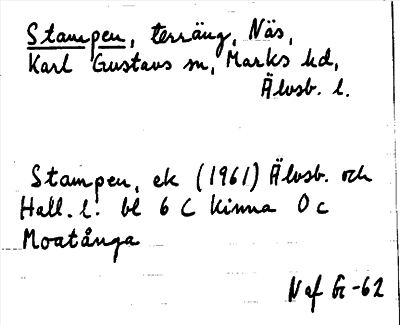 Stampen, terräng, Näs,
Karl Gustavs sn, Marks hd,
Älvsb. l.
Stampen, ek (1961) Älvsb. och
Hall. l. bl 6 C Kinna 0 c
Moatånga
Naf G-62